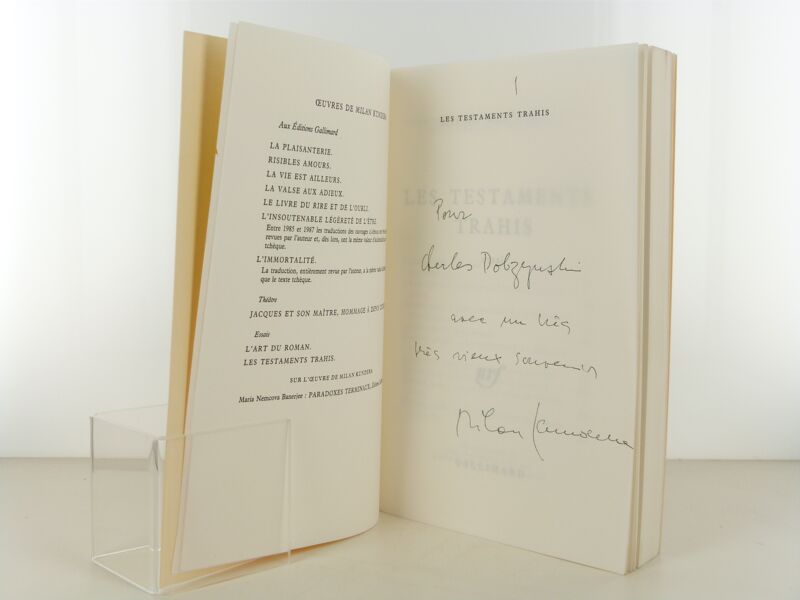 ŒUVRES DE MILAN KUNDERA
Aux Éditions Gallimard
LA PLAISANTERIE.
RISIBLES AMOURS.
LA VIE EST AILLEURS.
LA VALSE AUX ADIEUX.
LE LIVRE DU RIRE ET DE L'OUBLI.
L'INSOUTENABLE LÉGÈRETÉ DE L'ÊTRE.
Entre 1985 et 1987 les traductions des ouvrages
revues par l'auteur et, dès lors, ont la même valeur d'
tchèque.
L'IMMORTALITÉ.
La traduction, entièrement revue par l'auteur, a la même
que le texte tchèque.
Théâtre
JACQUES ET SON MAÎTRE, HOMMAGE À
Essais
L'ART DU ROMAN.
LES TESTAMENTS TRAHIS.
SUR L'ŒUVRE DE MILAN KUNDERA
Maria Nemcova Banerjee : PARADOXES TERMINAUX,
LES TESTAMENTS TRAHIS
LES TESTAMENTS
TRAHIS
Pour
Charles Dobzynski
avec un très
très vieux souvenir
nrf
Milan Kundera
GALLIMARD